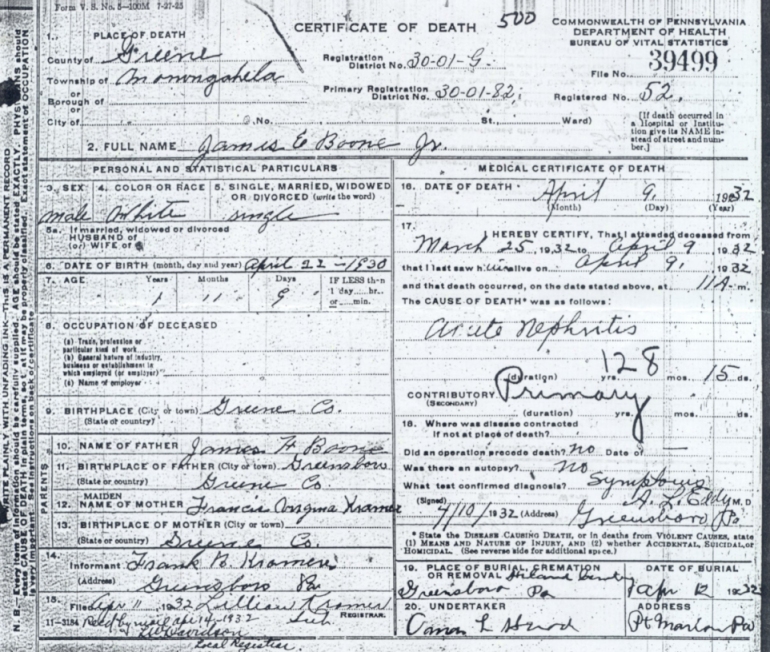 Form V. S. No. 5-100M 7-27-25
CERTIFICATE OF DEATH
500
COMMONWEALTH OF PENNSYLVANIA
DEPARTMENT OF HEALTH
BUREAU OF VITAL STATISTICS
1. PLACE OF DEATH
County of Greene
Township of Monongahela
or
Borough of
or
City of
No. St., Ward)
Registration District No. 30-01-G.
Primary Registration District No. 30-01-82;
File No. 39499
Registered No. 52.
[If death occurred in a Hospital or Institution give its NAME instead of street and number.]
2. FULL NAME James E Boone Jr.
PERSONAL AND STATISTICAL PARTICULARS
3. SEX male
4. COLOR OR RACE White
5. SINGLE, MARRIED, WIDOWED OR DIVORCED (write the word) single
5a. If married, widowed or divorced
HUSBAND of
(or) WIFE of
6. DATE OF BIRTH (month, day and year) April 22 - 1930
7. AGE Years Months Days IF LESS than
1 11 9 1 day hr..
or min.
8. OCCUPATION OF DECEASED
(a) Trade, profession or particular kind of work
(b) General nature of industry, business or establishment in which employed (or employer)
(c) Name of employer
9. BIRTHPLACE (City or town) Greene Co.
(State or country)
PARENTS
10. NAME OF FATHER James H Boone
11. BIRTHPLACE OF FATHER (City or town) Greensboro
(State or country) Greene Co
12. MAIDEN NAME OF MOTHER Francis Virginia Kramer
13. BIRTHPLACE OF MOTHER (City or town)
(State or country) Greene Co.
14. Informant Frank B. Kramer
(Address) Greensboro Pa
15. Filed Apr 11, 1932 Lillian Kramer
Sub. REGISTRAR.
11-3184 Recd by mail apr 14-1932
Davidson
Local Register
MEDICAL CERTIFICATE OF DEATH
16. DATE OF DEATH April 9, 1932
(Month) (Day) (Year)
17. I HEREBY CERTIFY, That I attended deceased from
March 25, 1932 to April 9 1932
that I last saw him alive on April 9, 1932
and that death occurred, on the date stated above, at 11 A m.
The CAUSE OF DEATH* was as follows:
Acute Nephritis
128
(duration) yrs. mos. 15 ds.
CONTRIBUTORY (SECONDARY) Primary
(duration) yrs. mos. ds.
18. Where was disease contracted
if not at place of death?
Did an operation precede death? no Date of
Was there an autopsy? no
What test confirmed diagnosis? Symptoms
(Signed) A. L. Eddy M.D
4/10/1932 (Address) Greensboro Pa
* State the DISEASE CAUSING DEATH, or in deaths from VIOLENT CAUSES, state
(1) MEANS AND NATURE OF INJURY, and (2) whether ACCIDENTAL, SUICIDAL, or
HOMICIDAL. (See reverse side for additional space.)
19. PLACE OF BURIAL, CREMATION OR REMOVAL
Greensboro Pa
DATE OF BURIAL
Apr 12 1932
20. UNDERTAKER
ADDRESS
Pt Marion Pa
N. B.—Every item of information should be carefully supplied. AGE should be stated EXACTLY. PHYSICIANS should
state CAUSE OF DEATH in plain terms, so that it may be properly classified. Exact statement of OCCUPATION
is very important. See instructions on back of certificate.
WRITE PLAINLY WITH UNFADING INK—THIS IS A PERMANENT RECORD